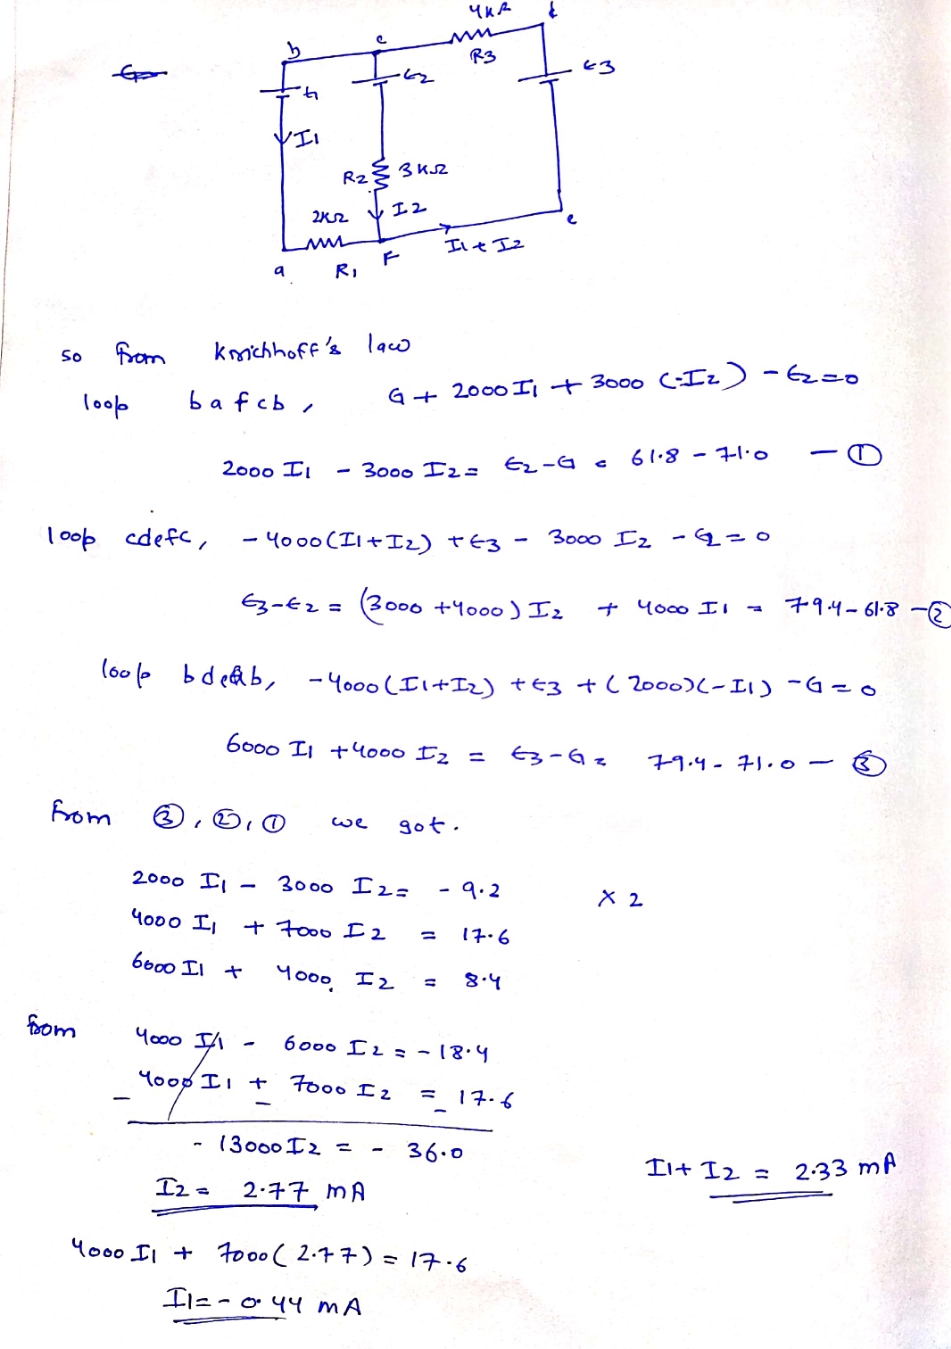 4KΩ
b
c
R3
ε2
ε3
I1
R2 3KΩ
2KΩ
I2
e
I1+I2
a
R1
F
so from Kroichhoff's law
loop bafcb, ε1 + 2000 I1 + 3000 (-I2) - ε2=0
2000 I1 - 3000 I2 = ε2-ε1 = 61.8 - 71.0 - ①
loop cdefc, - 4000(I1+I2) + ε3 - 3000 I2 - ε2 = 0
ε3-ε2 = (3000 +4000) I2 + 4000 I1 = 79.4-61.8 -②
loop, - 4000(I1+I2) + ε3 + (2000)(-I1) - ε1 = 0
6000 I1 +4000 I2 = ε3-ε1 = 79.4 - 71.0 - ③
from ③, ②, ① we got.
2000 I1 - 3000 I2 = - 9.2 × 2
4000 I1 + 7000 I2 = 17.6
6000 I1 + 4000 I2 = 8.4
from 4000 I1 - 6000 I2 = - 18.4
- 4000 I1 + 7000 I2 = 17.6
- 13000 I2 = - 36.0
I1+ I2 = 2.33 mA
I2 = 2.77 mA
4000 I1 + 7000 (2.77) = 17.6
I1 = - 0.44 mA